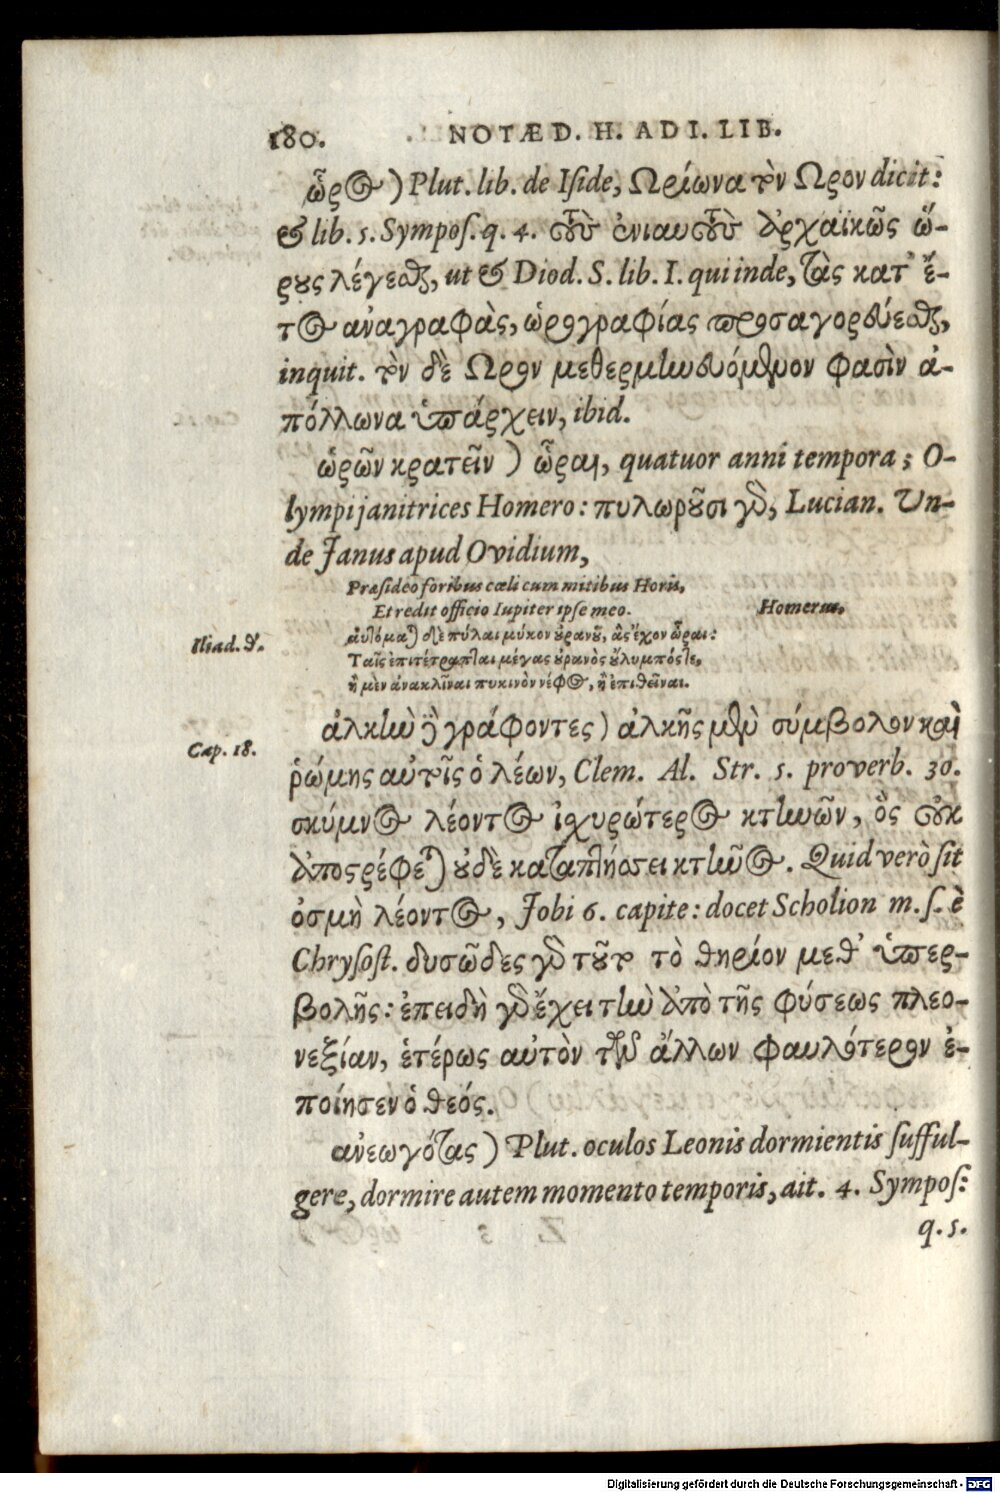 180. NOTÆ D. H. AD I. LIB.
ὦρος) Plut. lib. de Iside, Ωρίωνα τὸν Ωρον dicit:
& lib. 5. Sympos. q. 4. τοὺς ἐνιαυτοὺς ἀρχαϊκῶς ὥ-
ρους λέγεσθαι, ut & Diod. S. lib. I. qui inde, τὰς κατ' ἔ-
τος ἀναγραφὰς, ὡρογραφίας προσαγορεύεσθαι,
inquit. τὸν δὲ Ωρον μεθερμηνευόμενον φασὶν ἀ-
πόλλωνα ὑπάρχειν, ibid.
ὡρῶν κρατεῖν) ὧραι, quatuor anni tempora; O-
lympi janitrices Homero: πυλωροῦσι γὰρ, Lucian. Un-
de Janus apud Ovidium,
Præsideo foribus cœli cum mitibus Horis,
Et redit officio Iupiter ipse meo. Homerus,
Iliad. θ. αὐτόμαται δὲ πύλαι μύκον οὐρανοῦ, ἃς ἔχον ὧραι:
Ταῖς ἐπιτέτραπται μέγας οὐρανὸς οὔλυμπός τε,
ἢ μὲν ἀνακλῖναι πυκινὸν νέφος, ἢ ἐπιθεῖναι.
ἀλκὴν δὲ γράφοντες) ἀλκῆς μὲν σύμβολον καὶ
Cap. 18. ῥώμης αὐτοῖς ὁ λέων, Clem. Al. Str. 5. proverb. 30.
σκύμνος λέοντος ἰχυρώτερος κτηνῶν, ὃς οὐκ
ἀποστρέφεται οὐδὲ καταπλήσσει κτῆνος. Quid verò sit
ὀσμὴ λέοντος, Jobi 6. capite: docet Scholion m. s. è
Chrysost. δυσῶδες γὰρ τοῦτο τὸ θηρίον μεθ' ὑπερ-
βολῆς: ἐπειδὴ γὰρ ἔχει τὴν ἀπὸ τῆς φύσεως πλεο-
νεξίαν, ἑτέρως αὐτὸν τῶν ἄλλων φαυλότερον ἐ-
ποίησεν ὁ θεός.
ἀνεωγότας) Plut. oculos Leonis dormientis sufful-
gere, dormire autem momento temporis, ait. 4. Sympos:
q. 5.
Digitalisierung gefördert durch die Deutsche Forschungsgemeinschaft - DFG